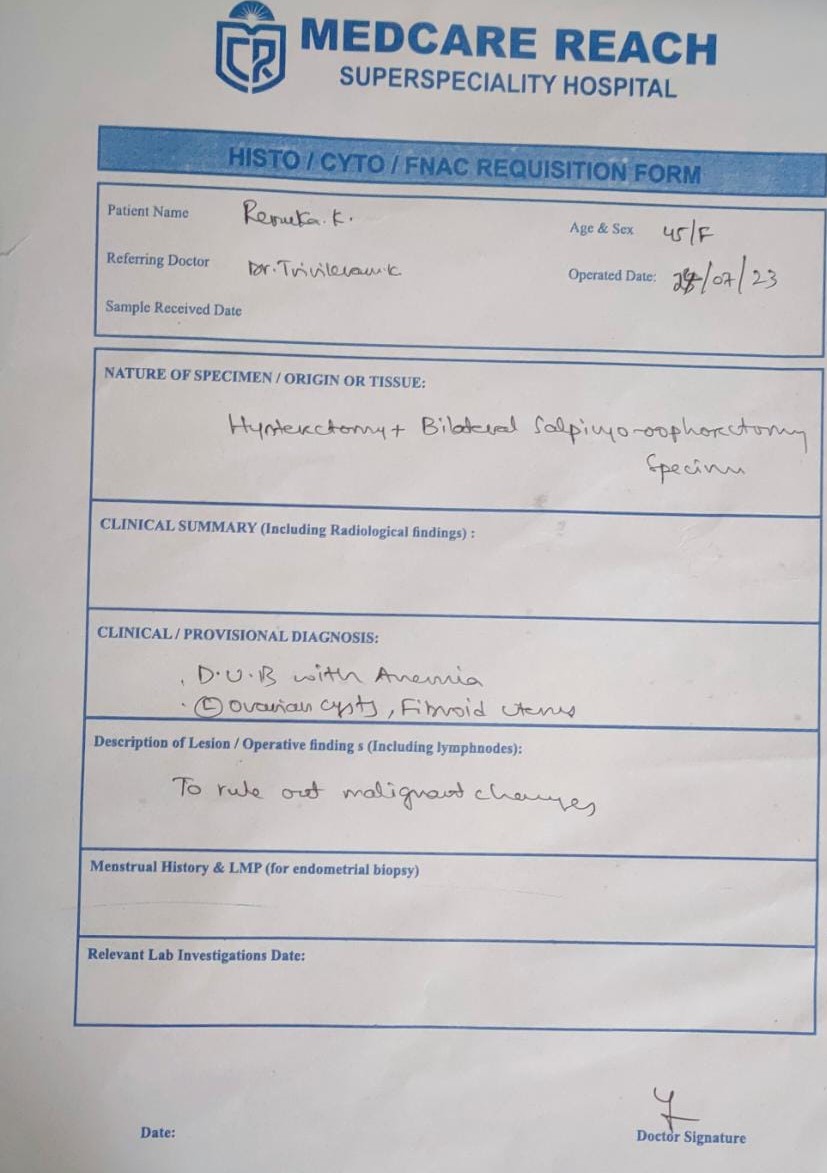 MEDCARE REACH
SUPERSPECIALITY HOSPITAL
HISTO / CYTO / FNAC REQUISITION FORM
Patient Name Renuka. K.
Age & Sex 45/F
Referring Doctor Dr.
Operated Date: /07/23
Sample Received Date
NATURE OF SPECIMEN / ORIGIN OR TISSUE:
Hysterectomy + Bilateral Salpingo-oophorectomy
Specimen
CLINICAL SUMMARY (Including Radiological findings) :
CLINICAL / PROVISIONAL DIAGNOSIS:
. D.U.B with Anemia
. ovarian cysts, Fibroid uterus
Description of Lesion / Operative finding s (Including lymphnodes):
To rule out malignant changes
Menstrual History & LMP (for endometrial biopsy)
Relevant Lab Investigations Date:
Date:
Doctor Signature